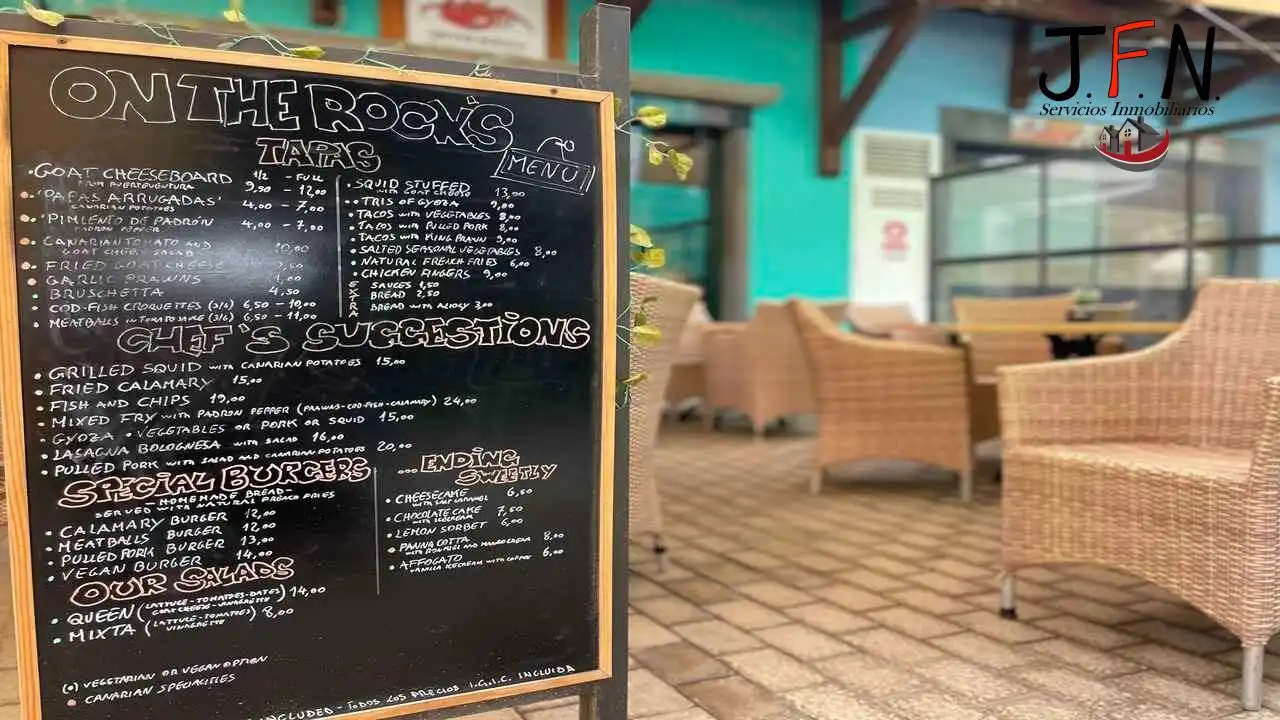 ON THE ROCK'S
TAPAS
MENU
1/2 - FULL
GOAT CHEESEBOARD 9,50 - 12,00
FROM FUERTEVENTURA
'PAPAS ARRUGADAS' 4,00 - 7,00
CANARIAN POTATOES
'PIMIENTO DE PADRÓN 4,00 - 7,00
PADRON PEPPER
CANARIAN TOMATO AND 10,00
GOAT CHEESE SALAD
FRIED GOAT CHEESE
GARLIC PRAWNS
BRUSCHETTA 4,50
COD-FISH CROQUETTES (3/6) 6,50 - 10,00
MEATBALLS IN TOMATO SAUCE (3/6) 6,50 - 11,00
SQUID STUFFED 13,00
WITH GOAT CHEESE
TRIS OF GYOZA 9,00
TACOS WITH VEGETABLES 8,00
TACOS WITH PULLED PORK 8,00
TACOS WITH KING PRAWN 9,00
SALTED SEASONAL VEGETABLES 8,00
NATURAL FRENCH FRIES 6,00
CHICKEN FINGERS 9,00
EXTRA
SAUCES 1,50
BREAD 2,50
BREAD WITH ALIOLY 3,00
CHEF'S SUGGESTIONS
GRILLED SQUID WITH CANARIAN POTATOES 15,00
FRIED CALAMARY 15,00
FISH AND CHIPS 19,00
MIXED FRY WITH PADRON PEPPER (PRAWNS-COD-FISH-CALAMARY) 24,00
GYOZA • VEGETABLES OR PORK OR SQUID 15,00
LASAGNA BOLOGNESA WITH SALAD 16,00
PULLED PORK WITH SALAD AND CANARIAN POTATOES 20,00
SPECIAL BURGERS
-HOMEMADE BREAD-
SERVED WITH NATURAL FRENCH FRIES
CALAMARY BURGER 12,00
MEATBALLS BURGER 12,00
PULLED PORK BURGER 13,00
VEGAN BURGER 14,00
...ENDING
SWEETLY
CHEESECAKE 6,50
WITH SALT CARAMEL
CHOCOLATE CAKE 7,50
WITH ICECREAM
LEMON SORBET 6,00
PANNA COTTA 8,00
AFFOGATO 6,00
VANILLA ICECREAM WITH COFFEE
OUR SALADS
QUEEN (LATTUCE-TOMATOES-DATES) 14,00
GOAT CHEESE-VINAGRETTE
MIXTA (LATTUCE-TOMATOES) 8,00
VINAGRETTE
(•) VEGETARIAN OR VEGAN OPTION
• CANARIAN SPECIALITIES
INCLUDED - TODOS LOS PRECIOS I.G.I.C. INCLUIDA
J.F.N.
Servicios Inmobiliarios